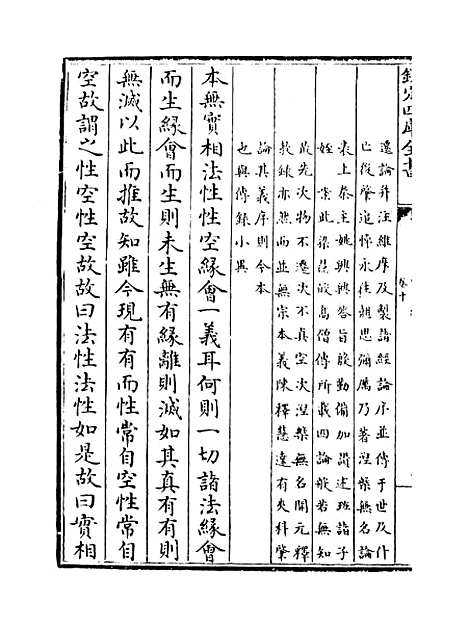 欽定四庫全書
卷十
遷論并注維摩及製諸經論序並傳于世及什
亡後肇追悼永往翹思彌厲乃著涅槃無名論
表上秦主姚興興答旨殷勤備加讚述班諸子
姪案此梁慧皎高僧傳所載四論般若無知
最先次物不遷次不真空次涅槃無名開元釋
教錄亦然而並無宗本義陳釋慧達有夾科肇
論其義序則今本
也與傳錄小異
本無實相法性性空緣會一義耳何則一切諸法緣會
而生緣會而生則未生無有緣離則滅如其真有有則
無滅以此而推故知雖今現有有而性常自空性常自
空故謂之性空性空故故曰法性法性如是故曰實相